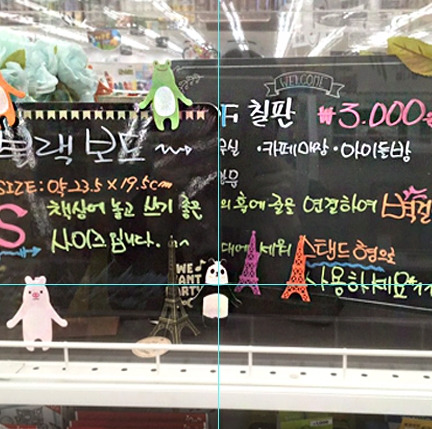 블랙 보드
SIZE: 약 23.5 × 19.5cm
S 책상에 놓고 쓰기 좋은
사이즈입니다.
WE WANT PARTY
WELCOME
칠판 ₩3.000
·카페매장·아이들방
의 홈에 줄을 연결하여 벽걸
대에 세워 스탠드형으로
사용하세요